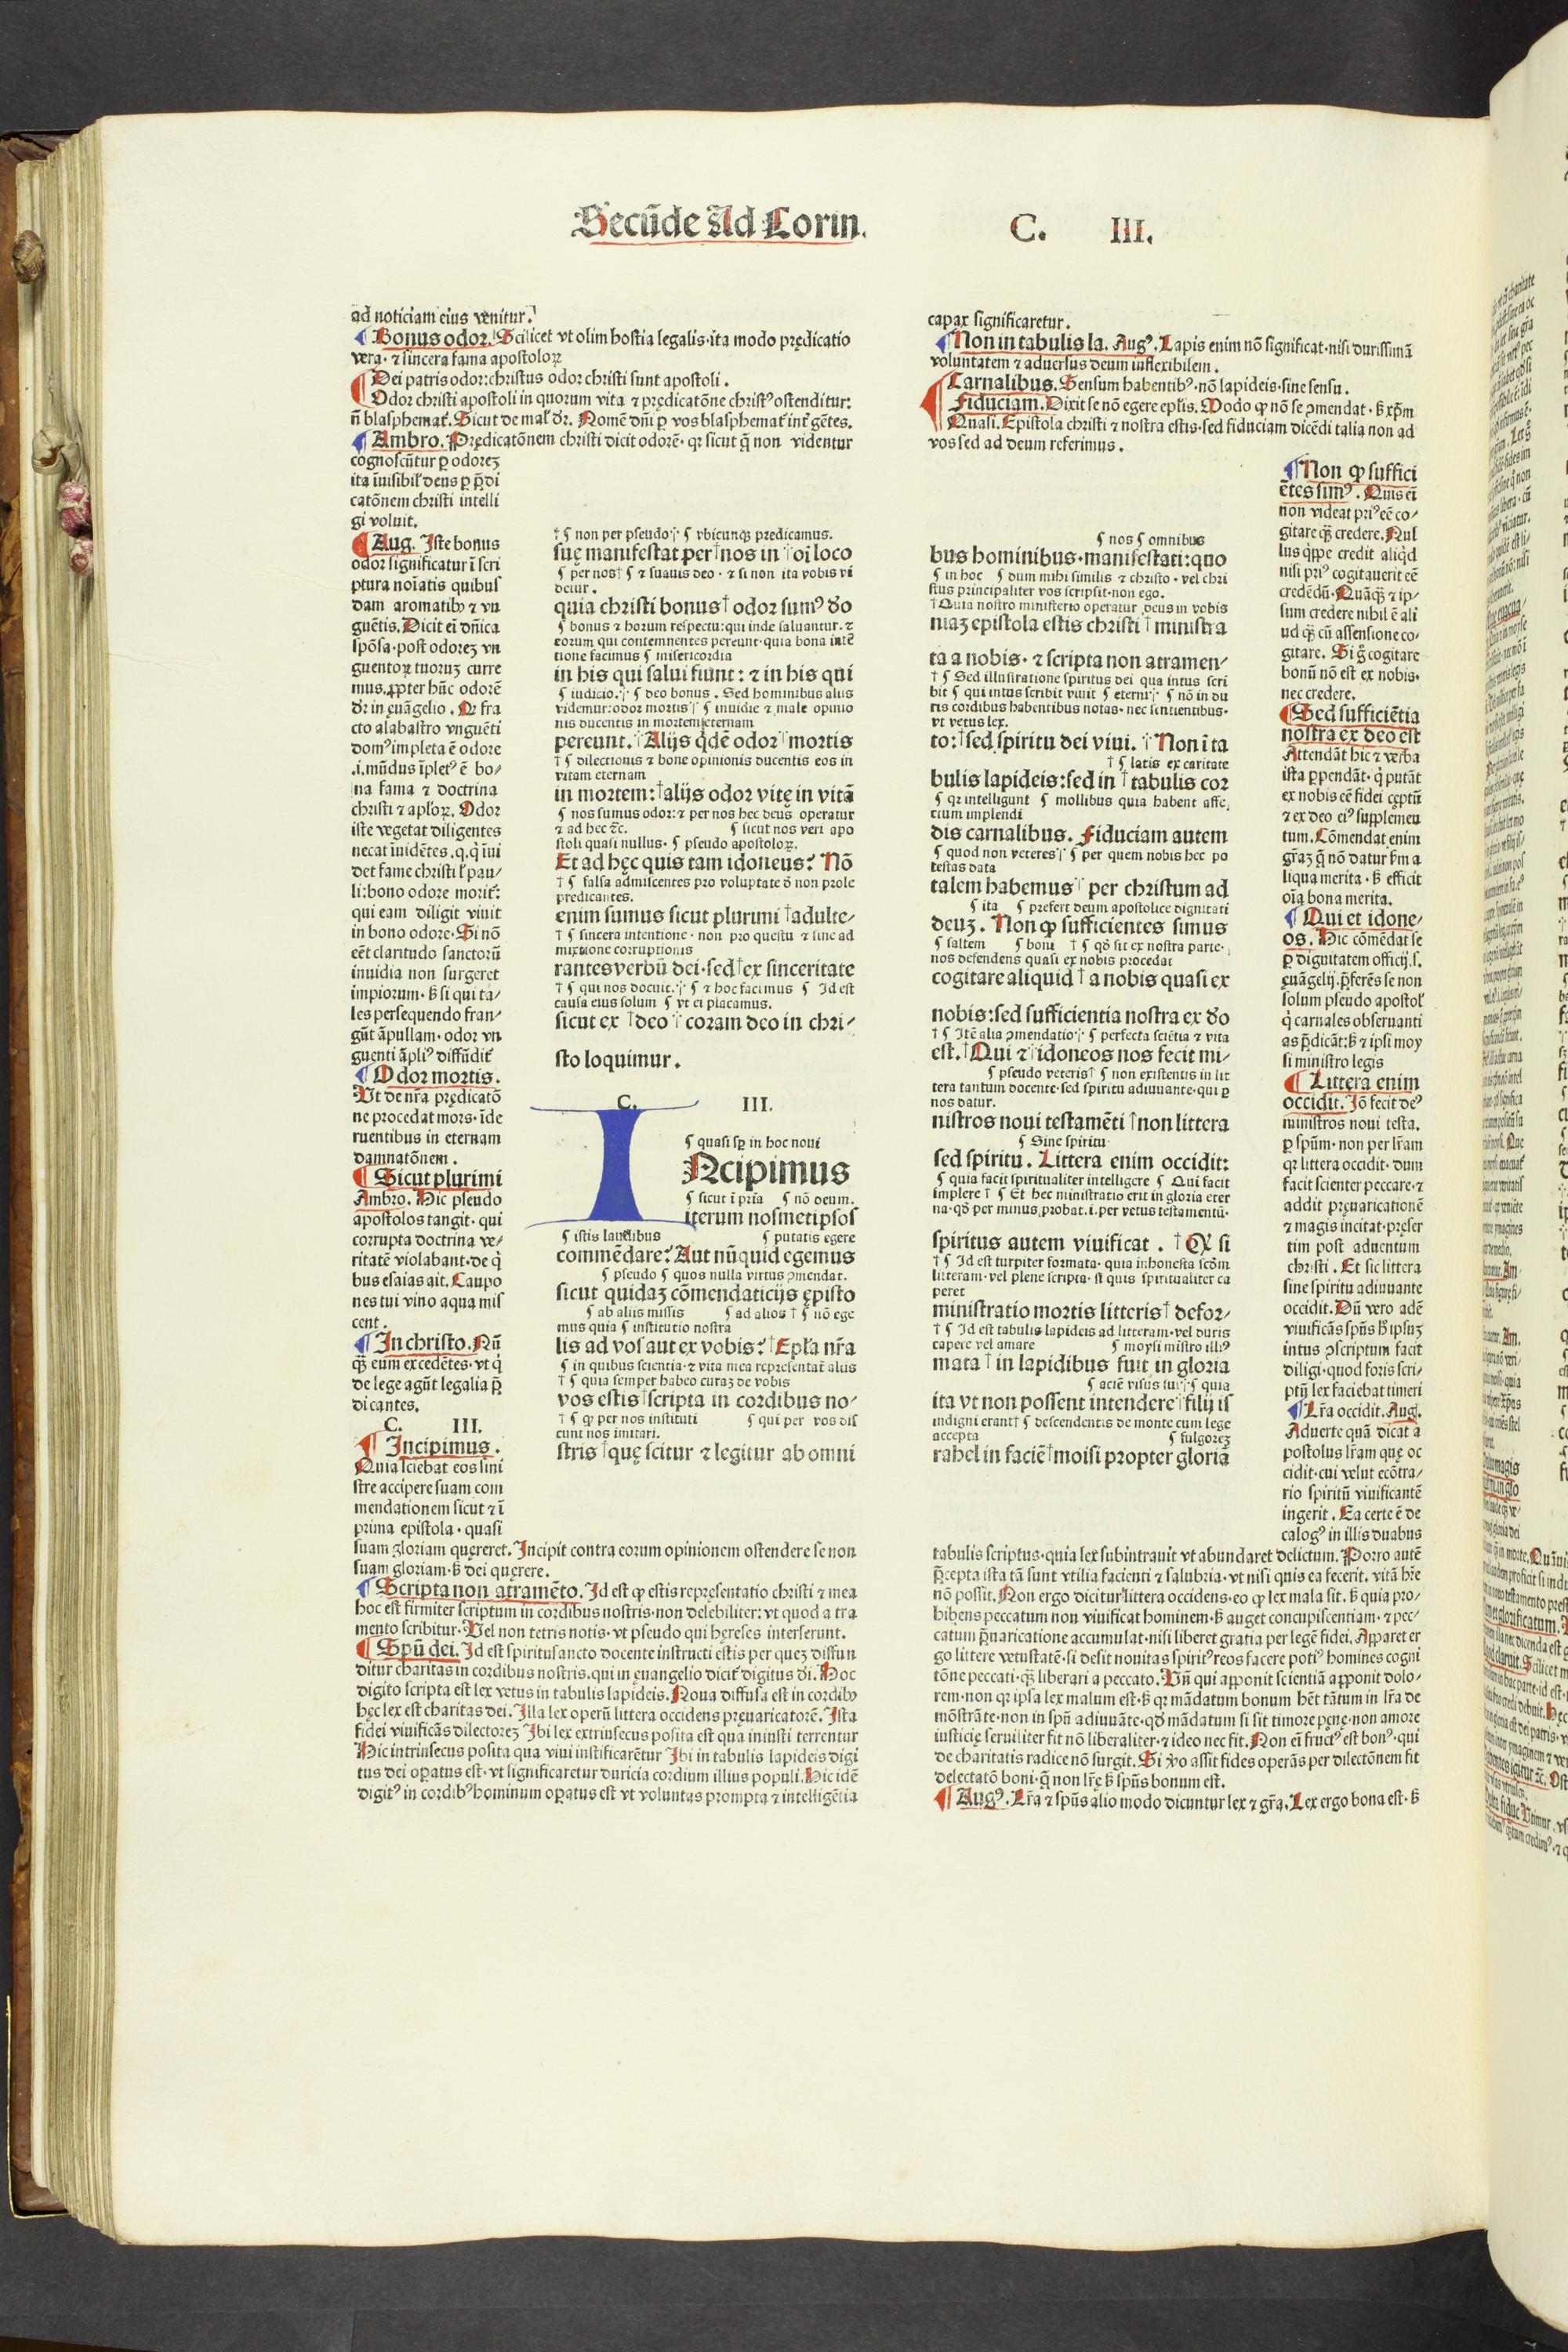 Secūde Ad Corin.
C. III.
ad noticiam eius venitur.
¶ Bonus odor. Scilicet vt olim hostia legalis·ita modo prędicatio
vera· ⁊ sincera fama apostoloꝝ
¶ Dei patris odor:christus odor christi sunt apostoli.
Odor christi apostoli in quorum vita ⁊ prędicatōne christꝰ ostenditur:
¶ Ambro. Prędicatōnem christi dicit odorē· qꝛ sicut q̄ non videntur
cognoscūtur ꝑ odoreꝫ
catōnem christi intelli
gi voluit.
¶ Aug. Iste bonus
odor significatur ī scri
ptura noīatis quibus
dam aromatibꝫ ⁊ vn
guētis. Dicit eī dn̄ica
spōsa·post odoreꝫ vn
guentoꝝ tuoruꝫ curre
mus. ꝓpter hūc odorē
cto alabastro vnguēti
domꝰ impleta ē odore
.i. mūdus īpletꝰ ē bo⸗
na fama ⁊ doctrina
iste vegetat diligentes
li: bono odore morit̄:
qui eam diligit viuit
in bono odore· Si nō
eēt claritudo sanctorū
inuidia non surgeret
impiorum· ß si qui ta⸗
les persequendo fran⸗
gūt āpullam·odor vn
guenti āpliꝰ diffūdit̄
¶ Odor mortis.
Vt de nr̄a prędicatō
ne procedat mors·īde
ruentibus in eternam
damnatōnem.
¶ Sicut plurimi
Ambro. Hic pseudo
apostolos tangit·qui
corrupta doctrina ve⸗
ritatē violabant·de q̄
bus esaias ait. Caupo
nes tui vino aqua mis
cent.
¶ In christo. Nū
qꝫ eum excedētes·vt q̄
de lege agūt legalia p̄
dicantes.
C. III.
¶ Incipimus.
Quia sciebat eos sini
stre accipere suam com
mendationem sicut ⁊ ī
prima epistola· quasi
suam gloriam quęreret. Incipit contra eorum opinionem ostendere se non
suam gloriam·ß dei quęrere.
¶ Scripta non atramēto. Id est ꝙ estis repręsentatio christi ⁊ mea
hoc est firmiter scriptum in cordibus nostris·non delebiliter: vt quod a tra
mento scribitur· Vel non tetris notis· vt pseudo qui hęreses interserunt.
¶ Spū dei. Id est spiritusancto docente instructi estis per queꝫ diffun
ditur charitas in cordibus nostris.qui in ęuangelio dicit̄ digitus dī. Hoc
digito scripta est lex vetus in tabulis lapideis. Noua diffusa est in cordibꝫ
hęc lex est charitas dei. Illa lex operū littera occidens pręuaricatorē. Ista
fidei viuificās dilectoreꝫ Ibi lex extrinsecus posita est qua iniusti terrentur
Hic intrinsecus posita qua viui iustificarētur Ibi in tabulis lapideis digi
tus dei oꝑatus est·vt significaretur duricia cordium illius populi. Hic idē
digitꝰ in cordibꝰ hominum oꝑatus est vt voluntas prompta ⁊ intelligētia
† ¶ non per pseudo ¶ vbicunqꝫ predicamus.
suę manifestat per†nos in †oī loco
¶ per nos† ¶ ⁊ suauis deo· ⁊ si non ita vobis vi
detur.
quia christi bonus† odor sumꝰ dō
¶ bonus ⁊ horum respectu: qui inde saluantur. ⁊
eorum qui contemnentes pereunt·quia bona intē
tione facimus ¶ misericordia
in his qui salui fiunt: ⁊ in his qui
¶ iudicio. ¶ deo bonus. Sed hominibus alius
videmur: odor mortis ¶ inuidie ⁊ male opinio
nis ducentis in mortem eternam
pereunt. †Alijs q̇dē odor †mortis
† ¶ dilectionis ⁊ bone opinionis ducentis eos in
vitam eternam
in mortem: †alijs odor vitę in vitā
¶ nos sumus odor: ⁊ per nos hec deus operatur
⁊ ad hec ⁊c. ¶ sicut nos veri apo
stoli quasi nullus· ¶ pseudo apostoloꝝ.
Et ad hęc quis tam idoneus? Nō
† ¶ falsa admiscentes pro voluptate ō non prole
predicantes.
enim sumus sicut plurimi †adulte⸗
† ¶ sincera intentione· non pro questu ⁊ sine ad
mixtione corruptionis
rantes verbū dei·sed†ex sinceritate
† ¶ qui nos docuit. ¶ ⁊ hoc facimus ¶ Id est
causa eius solum ¶ vt ei placamus.
sicut ex †deo † coram deo in chri⸗
sto loquimur.
C. III.
¶ quasi sꝑ in hoc noui
INcipimus
¶ sicut ī prīa ¶ nō deum.
iterum nosmetipsos
¶ istis laudibus ¶ putatis egere
commēdare? Aut nūquid egemus
¶ pseudo ¶ quos nulla virtus ꝯmendat.
sicut quidaꝫ cōmendaticijs ępisto
¶ ab aliis missis ¶ ad alios † ¶ nō ege
mus quia ¶ institutio nostra
lis ad vos aut ex vobis? †Epl̄a nr̄a
¶ in quibus scientia·⁊ vita mea representat̄ alius
† ¶ quia semper habeo curaꝫ de vobis
vos estis†scripta in cordibus no⸗
† ¶ ꝙ per nos instituti ¶ qui per vos dis
cunt nos imitari.
stris †quę scitur ⁊ legitur ab omni
capax significaretur.
¶ Non in tabulis la. Augꝰ. Lapis enim nō significat·nisi durissimā
voluntatem ⁊ aduersus deum inflexibilem.
¶ Carnalibus. Sensum habentibꝰ·nō lapideis·sine sensu.
Fiduciam. Dixit se nō egere epl̄is. Modo ꝙ nō se ꝯmendat·ß xp̄m
Quasi. Epistola christi ⁊ nostra estis·sed fiduciam dicēdi talia non ad
vos sed ad deum referimus.
¶ nos ¶ omnibus
bus hominibus·manifestati: quo
¶ in hoc ¶ dum mihi similis ⁊ christo· vel chri
stus principaliter vos scripsit·non ego.
† Quia nostro ministerio operatur deus in vobis
niaꝫ epistola estis christi †ministra
ta a nobis· ⁊ scripta non atramen⸗
† ¶ Sed illustratione spiritus dei qua intus scri
bit ¶ qui intus scribit viuit ¶ eterni ¶ nō in du
ris cordibus habentibus notas· nec sentientibus·
vt vetus lex.
to: †sed spiritu dei viui. †Non ī ta
† ¶ latis ex caritate
bulis lapideis: sed in †tabulis cor
¶ qꝛ intelligunt ¶ mollibus quia habent affe,
ctum implendi
dis carnalibus. Fiduciam autem
¶ quod non veteres ¶ per quem nobis hec po
testas data
talem habemus† per christum ad
¶ ita ¶ prefert deum apostolice dignitati
deuꝫ. Non ꝙ sufficientes simus
¶ saltem ¶ boni † ¶ qđ sit ex nostra parte·
nos defendens quasi ex nobis procedat
cogitare aliquid † a nobis quasi ex
nobis: sed sufficientia nostra ex dō
† ¶ Itē alia ꝯmendatio ¶ perfecta sciētia ⁊ vita
est. †Qui ⁊ †idoneos nos fecit mi⸗
¶ pseudo veteris† ¶ non existentis in lit
tera tantum docente·sed spiritu adiuuante·qui ꝑ
nos datur.
nistros noui testamēti †non littera
¶ Sine spiritu
sed spiritu. Littera enim occidit:
¶ quia facit spiritualiter intelligere ¶ Qui facit
implere † ¶ Et hec ministratio erit in gloria eter
na·qđ per minus probat. i. per vetus testamentū·
spiritus autem viuificat. †Qꝙ si
† ¶ Id est turpiter formata· quia inhonesta scōm
litteram·vel plene scripta· si quis spiritualiter ca
peret
ministratio mortis litteris† defor⸗
† ¶ Id est tabulis lapideis ad litteram·vel duris
capere vel amare ¶ moysi mīstro illiꝰ
mata †in lapidibus fuit in gloria
¶ aciē visus sui ¶ quia
ita vt non possent intendere †filij is
indigni erant† ¶ descendentis de monte cum lege
accepta ¶ fulgoreꝫ
rahel in faciē†moisi propter gloriā
¶ Non ꝙ suffici
ētes simꝰ. Quis eī
non videat priꝰ eē co⸗
gitare qꝫ credere. Nul
lus q̇ppe credit aliq̇d
nisi priꝰ cogitauerit eē
credēdū. Quāqꝫ ⁊ ip⸗
sum credere nihil ē ali
ud qꝫ cū assensione co⸗
gitare. Si g̊ cogitare
bonū nō est ex nobis·
nec credere.
¶ Sed sufficiētia
nostra ex deo est
Attendāt hic ⁊ verba
ista ꝑpendāt·q̇ putāt
ex nobis eē fidei cęptū
⁊ ex deo eiꝰ supplemeu
tum. Cōmendat enim
liqua merita· ß efficit
oīa bona merita.
¶ Qui et idone⸗
os. Hic cōmēdat se
ꝑ dignitatem officij.s.
ęuāgelij. p̄ferēs se non
solum pseudo apostol̄
q̇ carnales obseruanti
as p̄dicāt: ß ⁊ ipsi moy
si ministro legis
¶ Littera enim
occidit. Iō fecit deꝰ
ministros noui testa.
ꝑ spūm·non per lr̄am
qꝛ littera occidit· dum
facit scienter peccare·⁊
addit pręuaricationē
⁊ magis incitat·pręser
tim post aduentum
christi. Et sic littera
sine spiritu adiuuante
occidit. Dū vero adē
intus ꝯscriptum facit
diligi·quod foris scri⸗
ptū lex faciebat timeri
¶ Lr̄a occidit. Aug.
Aduerte quā dicat a
postolus lr̄am quę oc
cidit·cui velut ecōtra⸗
rio spiritū viuificantē
ingerit. Ea certe ē de
calogꝰ in illis duabus
tabulis scriptus·quia lex subintrauit vt abundaret delictum. Porro autē
p̄cepta ista tā sunt vtilia facienti ⁊ salubria·vt nisi quis ea fecerit. vitā hr̄e
nō possit. Non ergo dicitur littera occidens·eo ꝙ lex mala sit. ß quia pro⸗
hibens peccatum non viuificat hominem·ß auget concupiscentiam·⁊ pec⸗
catum p̄uaricatione accumulat·nisi liberet gratia per legē fidei. Apparet er
go littere vetustatē·si desit nouitas spiritꝰ reos facere potiꝰ homines cogni
tōne peccati·qꝫ liberari a peccato. Vn̄ qui apponit scientiā apponit dolo⸗
rem·non qꝛ ipsa lex malum est·ß qꝛ mādatum bonum hēt tātum in lr̄a de
mōstrāte·non in spū adiuuāte·qđ mādatum si sit timore pęnę·non amore
iusticię seruiliter fit nō liberaliter·⁊ ideo nec fit. Non eī fructꝰ est bonꝰ·qui
de charitatis radice nō surgit. Si ꝟo assit fides operās per dilectōnem fit
delectatō boni·q̄ non lr̄ę ß spūs bonum est.
¶ Augꝰ. Lr̄a ⁊ spūs alio modo dicuntur lex ⁊ gr̄a. Lex ergo bona est·ß